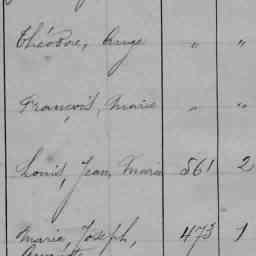 Théodore, Ange " "
François, Marie " "
Louis, Jean, Marie 561 2
Marie, Joseph, 473 1